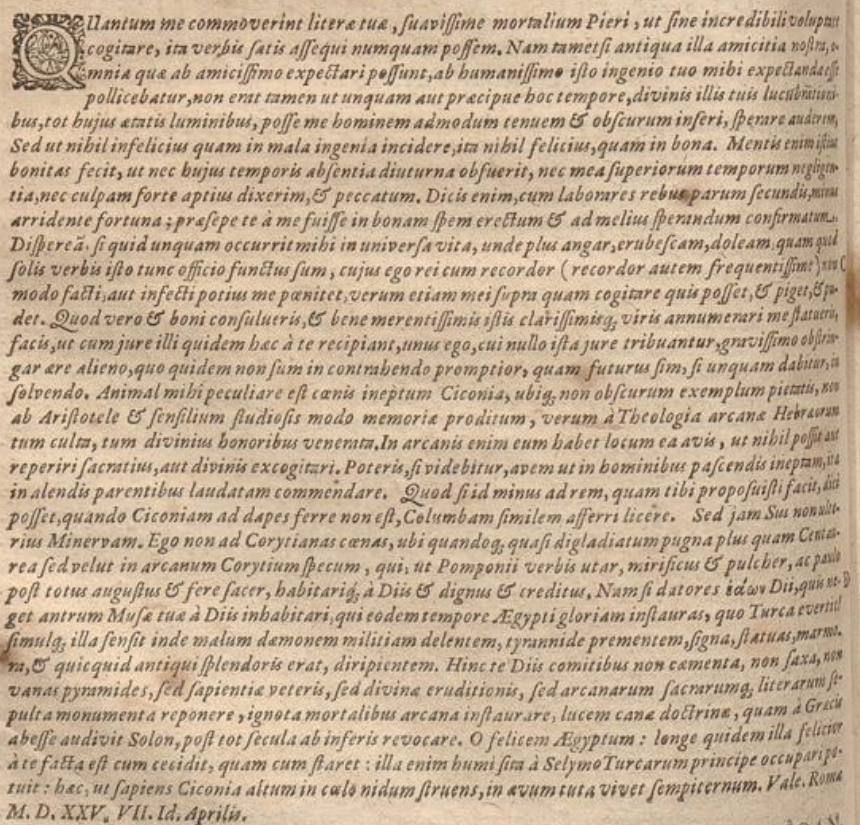 QUantum me commoverint literæ tuæ, suavissime mortalium Pieri, ut sine incredibili voluptate
cogitare, ita verbis satis assequi numquam possem. Nam tametsi antiqua illa amicitia nostra, o-
mnia quæ ab amicissimo expectari possunt, ab humanissimo isto ingenio tuo mihi expectanda esse
pollicebatur, non erat tamen ut unquam aut præcipue hoc tempore, divinis illis tuis lucubrationi-
bus, tot hujus ætatis luminibus, posse me hominem admodum tenuem & obscurum inseri, sperare auderem,
Sed ut nihil infelicius quam in mala ingenia incidere, ita nihil felicius, quam in bona. Mentis enim istius
bonitas fecit, ut nec hujus temporis absentia diuturna obfuerit, nec mea superiorum temporum negligen-
tia, nec culpam forte aptius dixerim, & peccatum. Dicis enim, cum laborares rebus parum secundis, minus
arridente fortuna; præsepe te à me fuisse in bonam spem erectum & ad melius sperandum confirmatum.
Dispereã. si quid unquam occurrit mihi in universa vita, unde plus angar, erubescam, doleam, quam quod
solis verbis isto tunc officio functus sum, cujus ego rei cum recordor (recordor autem frequentissime) non
modo facti, aut infecti potius me pœnitet, verum etiam mei supra quam cogitare quis posset, & piget, & pu-
det. Quod vero & boni consulueris, & bene merentissimis istis clarissimisq; viris annumerari me statueris,
facis, ut cum jure illi quidem hæc à te recipiant, unus ego, cui nullo ista jure tribuantur, gravissimo obstrin-
gar ære alieno, quo quidem non sum in contrahendo promptior, quam futurus sim, si unquam dabitur, in
solvendo. Animal mihi peculiare est cœnis ineptum Ciconia, ubiq; non obscurum exemplum pietatis, non
ab Aristotele & sensilium studiosis modo memoriæ proditum, verum à Theologia arcana Hebræorum
tum culta, tum divinius honoribus venerata. In arcanis enim eum habet locum ea avis, ut nihil possit aut
reperiri sacratius, aut divinis excogitari. Poteris, si videbitur, avem ut in hominibus pascendis ineptam, ita
in alendis parentibus laudatam commendare. Quod si id minus ad rem, quam tibi proposuisti facit, dici
posset, quando Ciconiam ad dapes ferre non est, Columbam similem afferri licere. Sed jam Sus non ulte-
rius Minervam. Ego non ad Corytianas cœnas, ubi quandoq; quasi digladiatum pugna plus quam Centau-
rea sed velut in arcanum Corytium specum, qui, ut Pomponii verbis utar, mirificus & pulcher, ac paulo
post totus augustus & fere sacer, habitariq; à Diis & dignus & creditus. Nam si datores ἐάων Dii, quis ne-
get antrum Musæ tuæ à Diis inhabitari, qui eodem tempore Ægypti gloriam instauras, quo Turca evertit
simulq; illa sensit inde malum dæmonem militiam delentem, tyrannide prementem, signa, statuas, marmo-
ra, & quicquid antiqui splendoris erat, diripientem. Hinc te Diis comitibus non cæmenta, non saxa, non
vanas pyramides, sed sapientiæ veteris, sed divinæ eruditionis, sed arcanarum sacrarumq; literarum se-
pulta monumenta reponere, ignota mortalibus arcana instaurare, lucem canæ doctrinæ, quam à Græcis
abesse audivit Solon, post tot secula ab inferis revocare. O felicem Ægyptum: longe quidem illa felicior
à te facta est cum cecidit, quam cum staret: illa enim humi sita à Selymo Turcarum principe occupari po-
tuit: hæc, ut sapiens Ciconia altum in cælo nidum struens, in ævum tuta vivet sempiternum. Vale. Romæ
M. D. XXV. VII. Id. Aprilis.